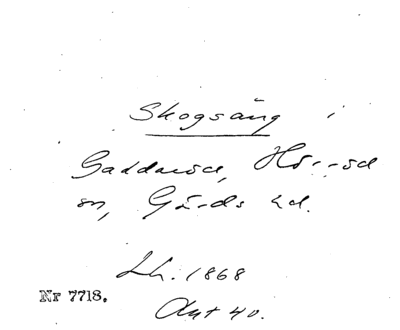 Skogsäng i
Gaddaröd, Hörröd
sn, Gärds hd.
Lh. 1868
Nr 7718.
Ant 40.